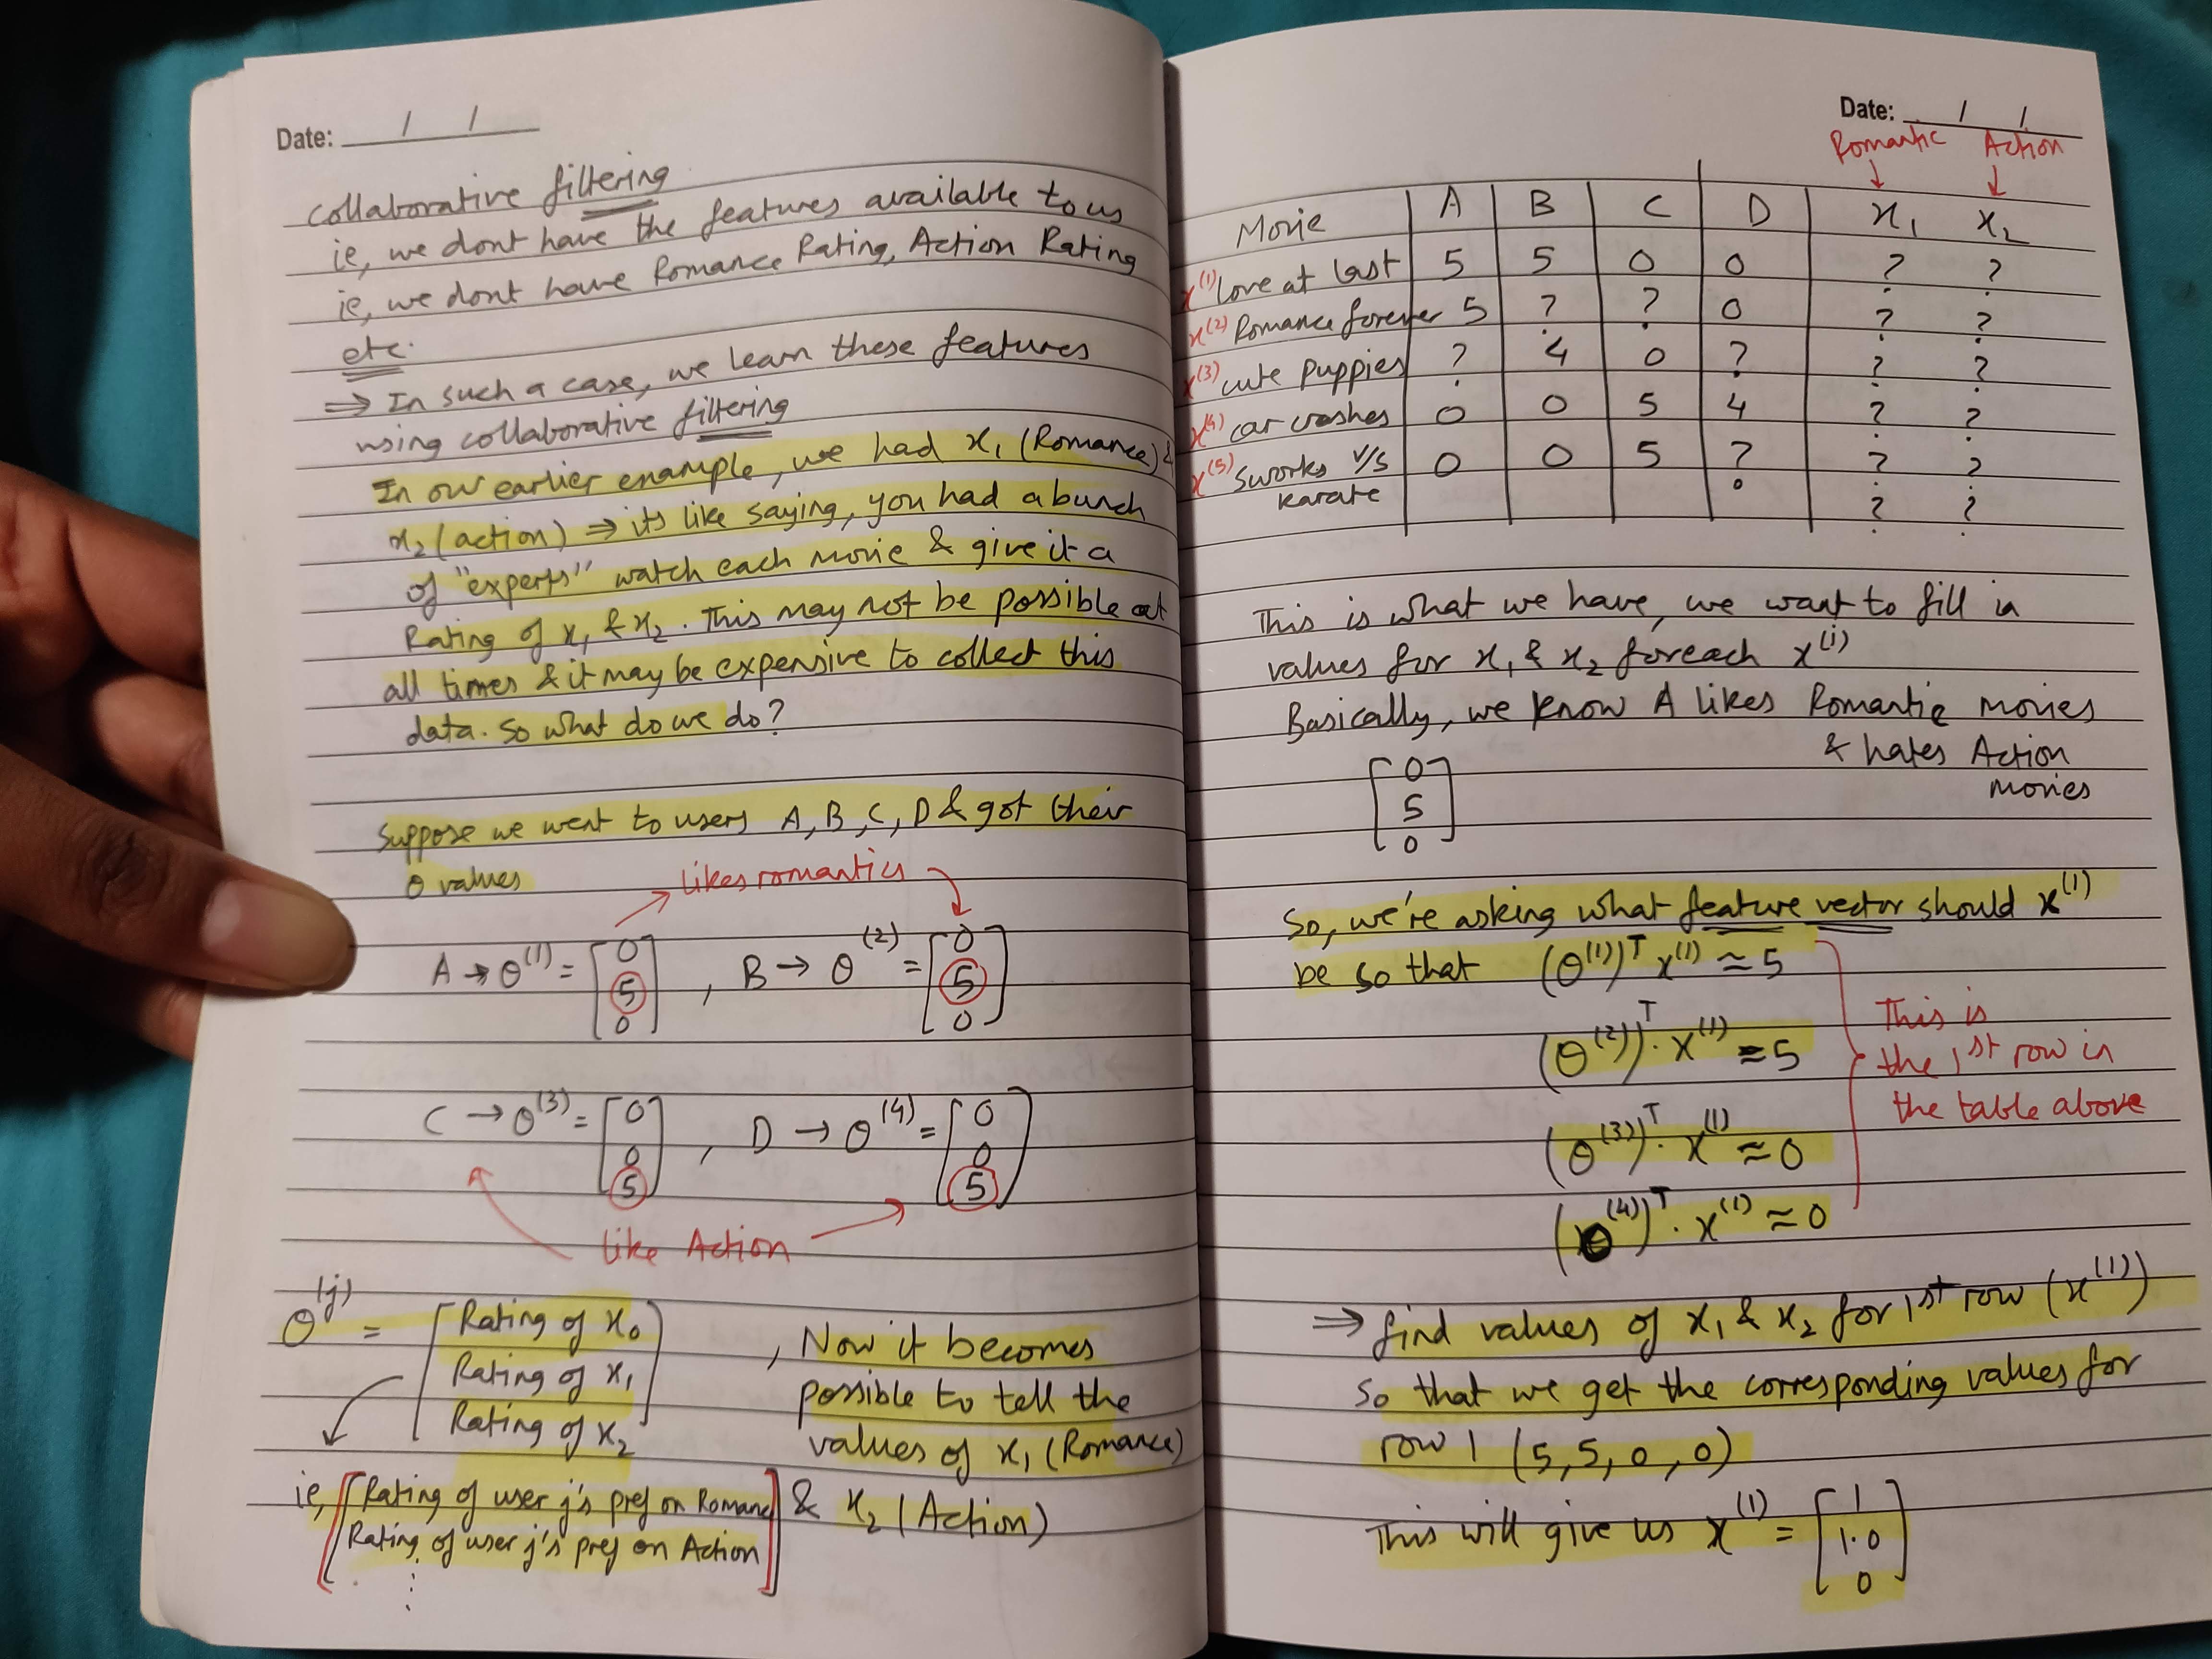 Date: / /
Collaborative filtering
ie, we dont have the features available to us
ie, we dont have Romance Rating, Action Rating
etc.
⇒ In such a case, we learn these features
using collaborative filtering
In our earlier example, we had x₁ (Romance) &
x₂ (action) ⇒ its like saying, you had a bunch
of "experts" watch each movie & give it a
Rating of x₁ & x₂. This may not be possible at
all times & it may be expensive to collect this
data. So what do we do?
Suppose we went to users A, B, C, D & got their
θ values
likes romantics
A → θ⁽¹⁾ = [0 5 0] , B → θ⁽²⁾ = [0 5 0]
C → θ⁽³⁾ = [0 0 5] , D → θ⁽⁴⁾ = [0 0 5]
like Action
θ⁽ʲ⁾ = [Rating of x₀
Rating of x₁
Rating of x₂]
, Now it becomes
possible to tell the
values of x₁ (Romance)
& x₂ (Action)
ie, [Rating of user j's pref on Romanc
Rating of user j's pref on Action
⋮]
Date: / /
Romantic Action
↓ ↓
Movie A B C D x₁ x₂
x⁽¹⁾ love at last 5 5 0 0 ? ?
x⁽²⁾ Romance forever 5 ? ? 0 ? ?
x⁽³⁾ cute puppies ? 4 0 ? ? ?
x⁽⁴⁾ car crashes 0 0 5 4 ? ?
x⁽⁵⁾ Sworks v/s 0 0 5 ? ? ?
karate ? ?
This is what we have, we want to fill in
values for x₁ & x₂ foreach x⁽ⁱ⁾
Basically, we know A likes Romantic movies
& hates Action
movies
[0 5 0]
So, we're asking what feature vector should x⁽¹⁾
be so that (θ⁽¹⁾)ᵀ x⁽¹⁾ ≈ 5
(θ⁽²⁾)ᵀ · x⁽¹⁾ ≈ 5
(θ⁽³⁾)ᵀ · x⁽¹⁾ ≈ 0
(θ⁽⁴⁾)ᵀ · x⁽¹⁾ ≈ 0
This is
the 1st row in
the table above
⇒ find values of x₁ & x₂ for 1st row (x⁽¹⁾)
So that we get the corresponding values for
row 1 (5, 5, 0, 0)
This will give us x⁽¹⁾ = [1 1.0 0]